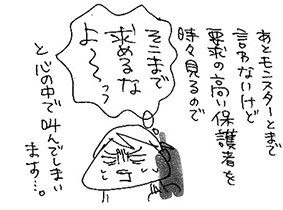 あとモンスターとまで
言わないけど
要求の高い保護者を
時々見るので
そこまで
求めるな
よ〜〜っっ
と心の中で叫んでしまい
ます…。